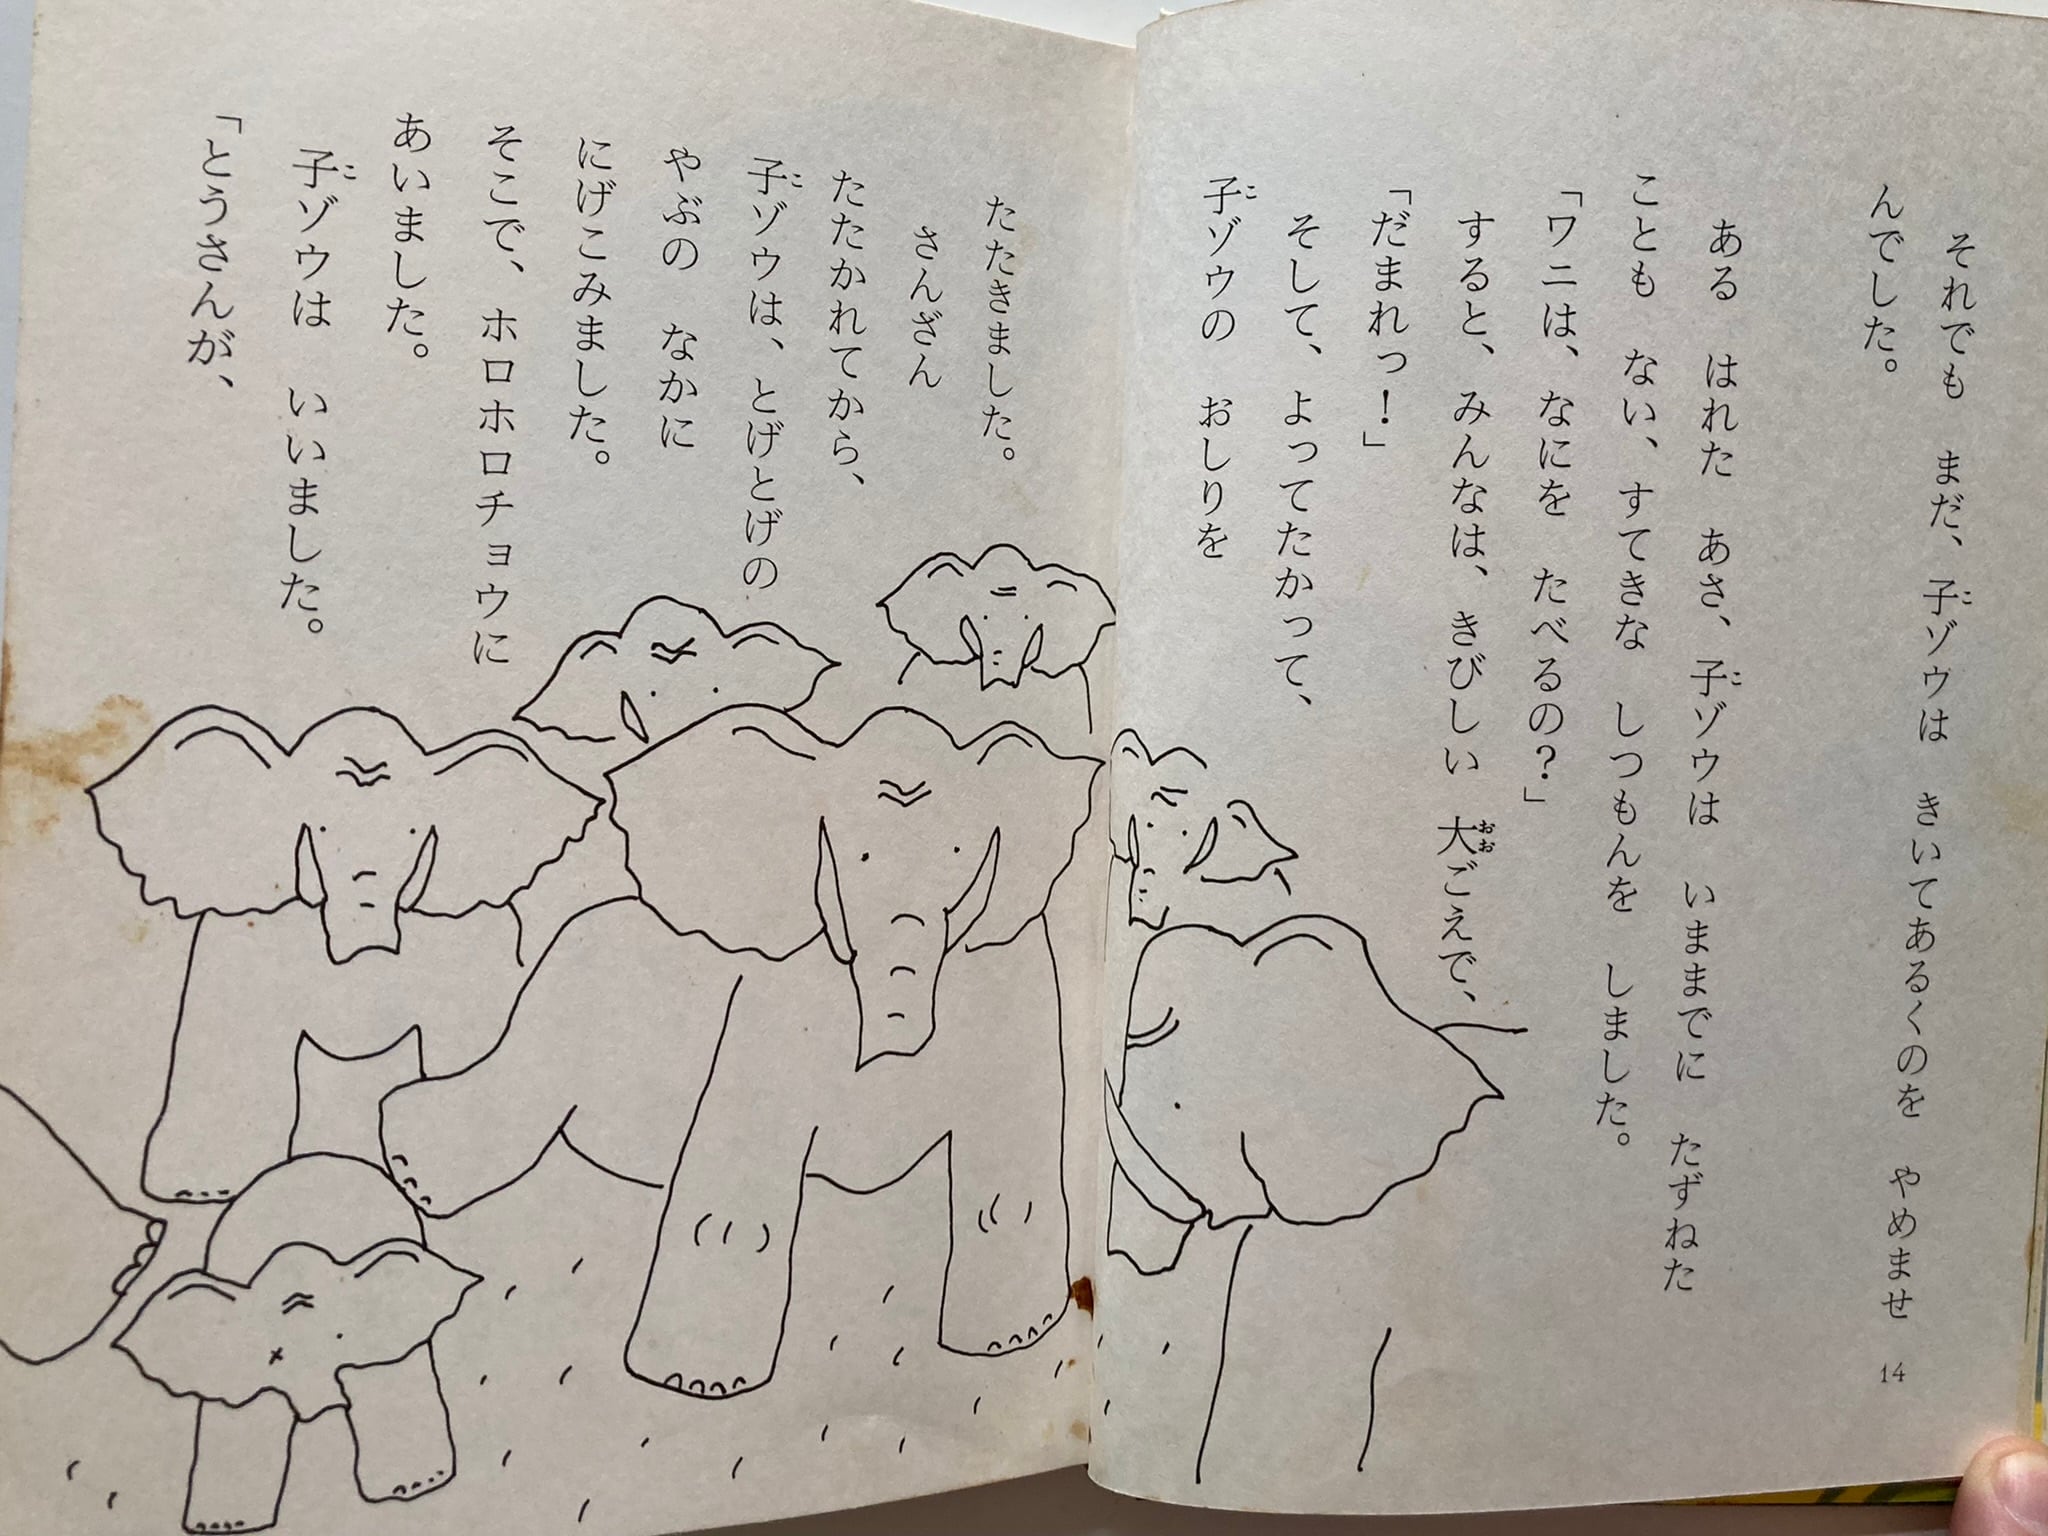 それでも まだ、子ゾウは きいてあるくのを やめませ
んでした。
ある はれた あさ、子ゾウは いままでに たずねた
ことも ない、すてきな しつもんを しました。
「ワニは、なにを たべるの？」
すると、みんなは、きびしい 大ごえで、
「だまれっ！」
そして、よってたかって、
子ゾウの おしりを
14
たたきました。
さんざん
たたかれてから、
子ゾウは、とげとげの
やぶの なかに
にげこみました。
そこで、ホロホロチョウに
あいました。
子ゾウは いいました。
「とうさんが、